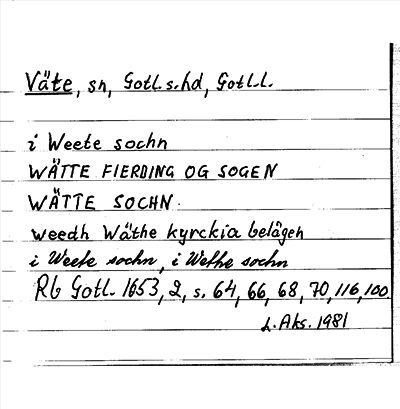 Väte, sn, Gotl. s. hd, Gotl. l.
i Weete sochn
WÄTTE FIERDING OG SOGEN
WÄTTE SOCHN.
weedh Wäthe kyrckia belägen
i Weete sochn, i Wethe sochn
Rb Gotl. 1653, 2, s. 64, 66, 68, 70, 116, 100.
L. Aks. 1981